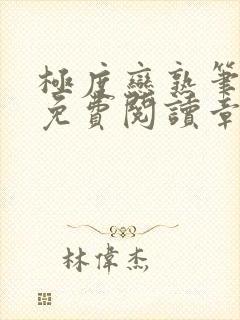 極度戀熟筆
免費閱讀章
林偉杰